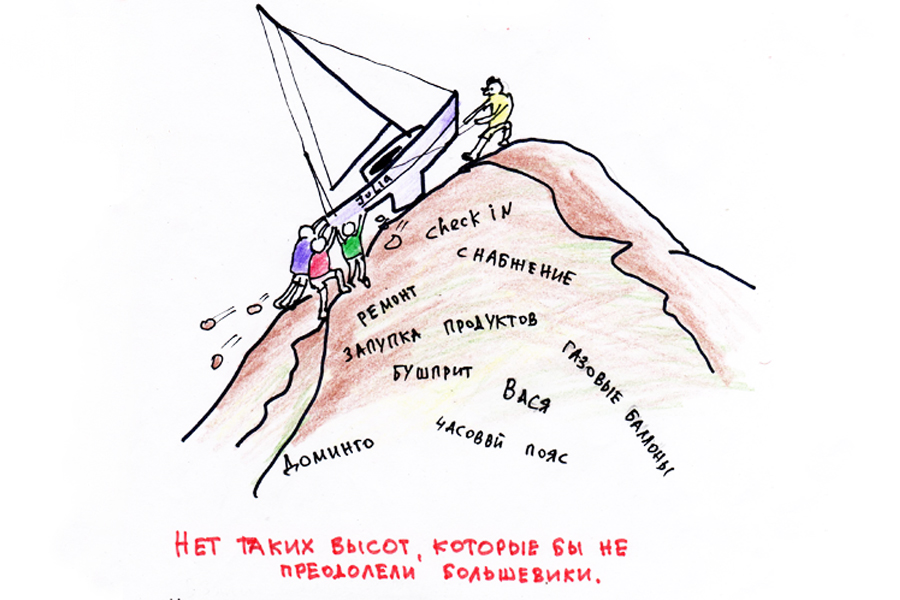 Julia
check in
СНАБЖЕНИЕ
РЕМОНТ
ЗАПУПКА ПРОДУКТОВ
БУШПРИТ
ГАЗОВЫЕ БАЛЛОНЫ
ВАСЯ
ЧАСОВВЙ ПОЯС
ДОМИНГО
НЕТ ТАКИХ ВЫСОТ, КОТОРЫЕ БЫ НЕ
ПРЕОДОЛЕЛИ БОЛЬШЕВИКИ.